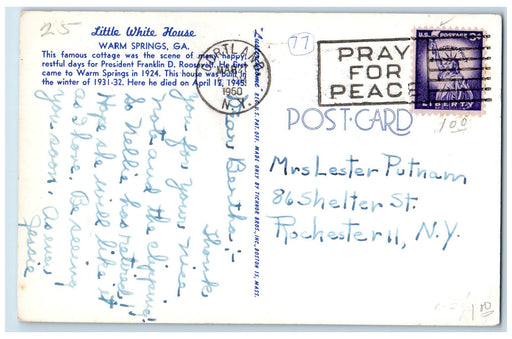 25
Little White House
WARM SPRINGS, GA.
This famous cottage was the scene of many happy,
restful days for President Franklin D. Roosevelt. He first
came to Warm Springs in 1924. This house was built in
the winter of 1931-32. Here he died on April 12, 1945.
Dear Bertha:-
Thank
you for your nice
note and the clipping.
So Nellie has retired!
Hope she will like it
as I have. Be seeing
you soon. As ever,
Jessie
CORTLAND
MAR
1960
N.Y.
77
PRAY
FOR
PEACE
U.S. POSTAGE 3¢
LIBERTY
POST CARD
100
Mrs Lester Putnam
86 Shelter St.
Rochester 11, N.Y.
MADE ONLY BY TICHNOR BROS., INC. BOSTON 15, MASS.